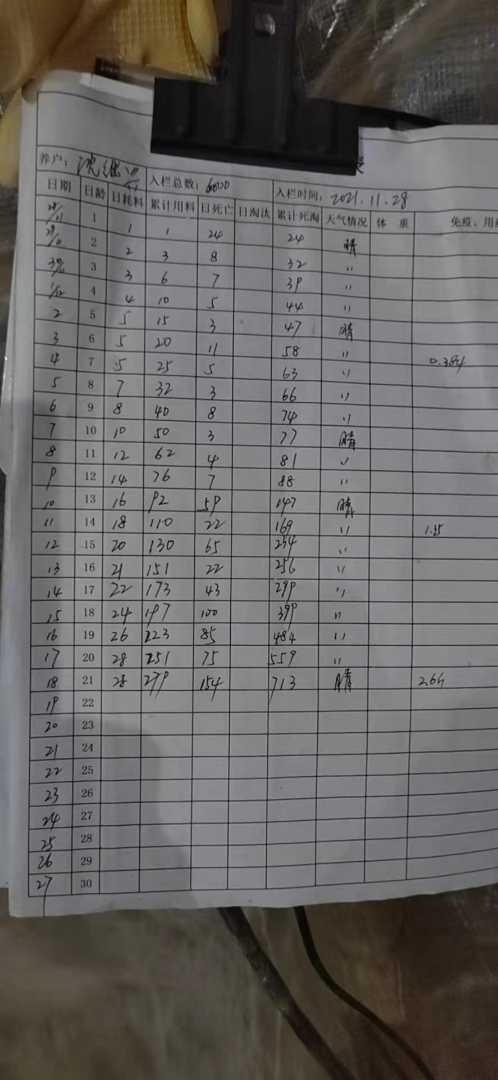 养户： 入栏总数： 入栏时间：2021.11.28
日期 日龄 日耗料 累计用料 日死亡 日淘汰 累计死淘 天气情况 体 质 免疫、用
28/11 1 1 1 24 24 晴
2 2 3 8 32 〃
3 3 6 7 39 〃
1/12 4 4 10 5 44 〃
2 5 5 15 3 47 晴
3 6 5 20 11 58 〃
4 7 5 25 5 63 〃
5 8 7 32 3 66 〃
6 9 8 40 8 74 〃
7 10 10 50 3 77 晴
8 11 12 62 4 81 〃
9 12 14 76 7 88 〃
10 13 16 92 59 147 晴
11 14 18 110 22 169 〃
12 15 20 130 65 234 〃
13 16 21 151 22 256 〃
14 17 22 173 43 299 〃
15 18 24 197 100 399 〃
16 19 26 223 85 484 〃
17 20 28 251 75 559 〃
18 21 28 279 154 713 晴
19 22
20 23
21 24
22 25
23 26
24 27
25 28
26 29
27 30